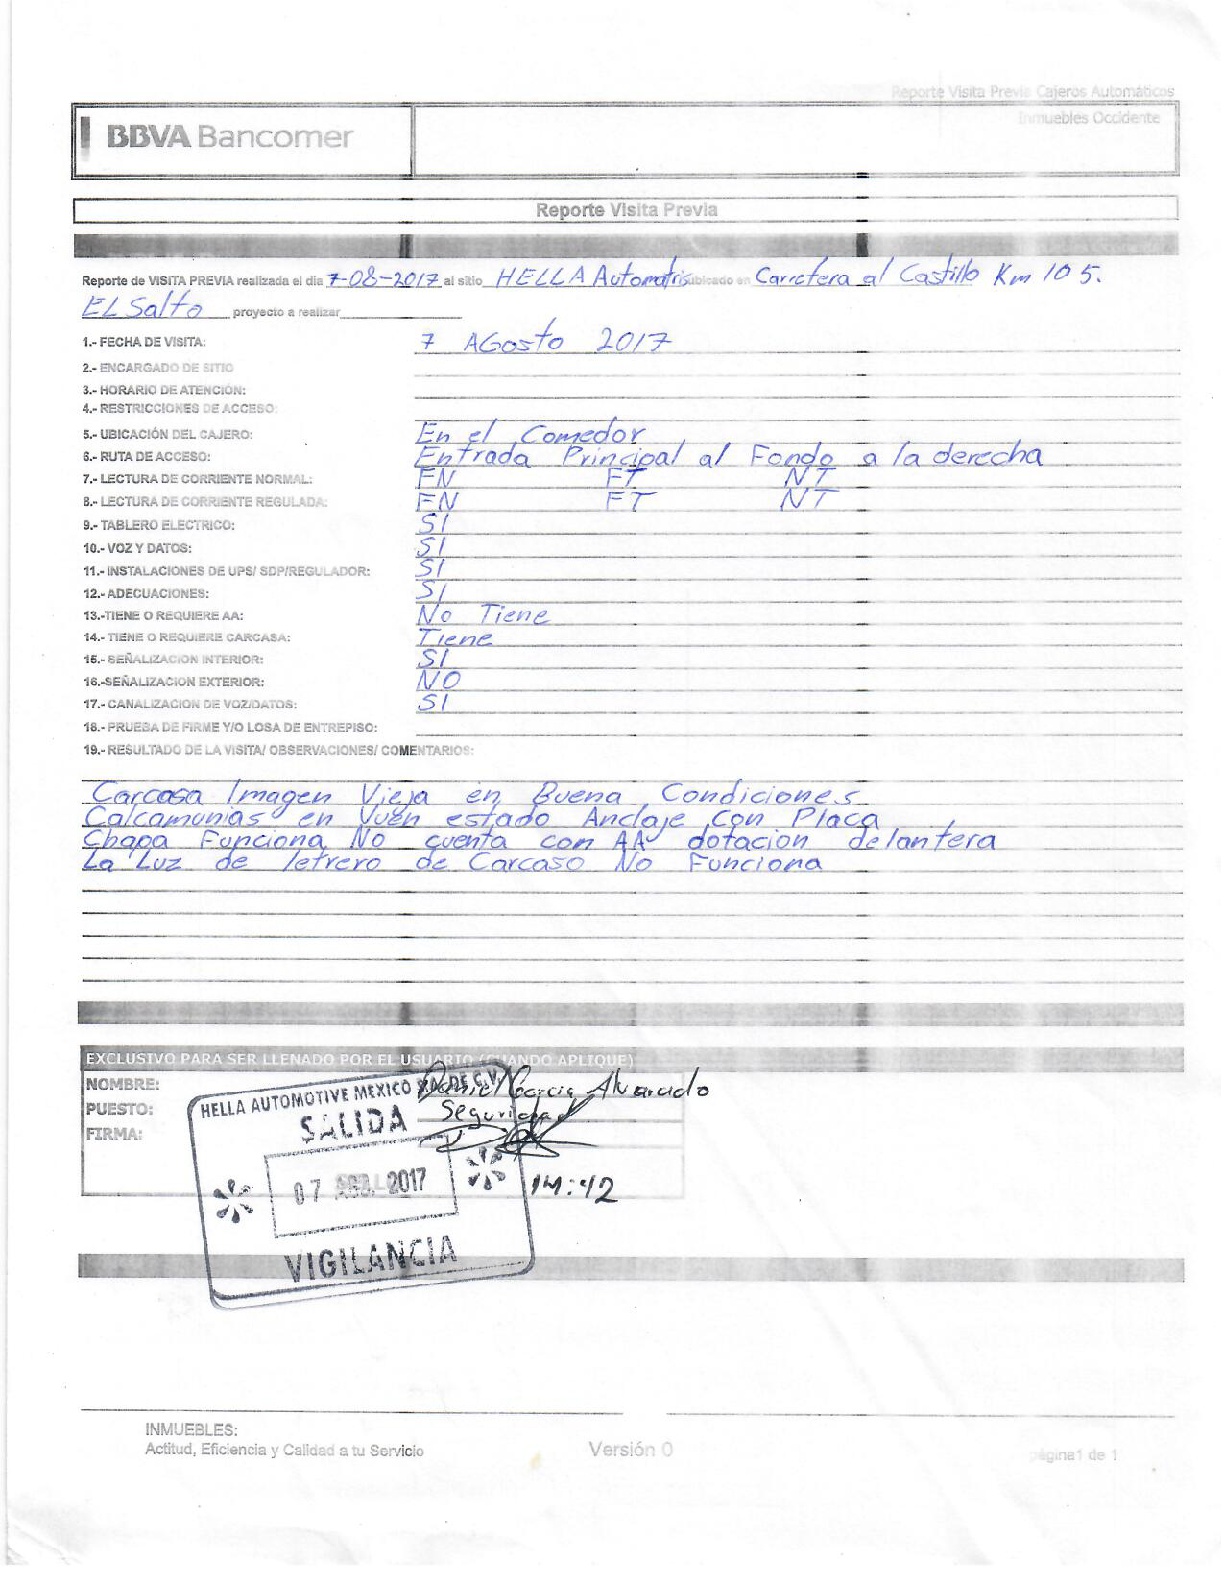 Reporte Visita Previa Cajeros Automáticos
Inmuebles Occidente
BBVA Bancomer
Reporte Visita Previa
Reporte de VISITA PREVIA realizada el día 7-08-2017 al sitio HELLA Automotris ubicado en Carretera al Castillo Km 10 5.
EL Salto proyecto a realizar
1.- FECHA DE VISITA: 7 AGosto 2017
2.- ENCARGADO DE SITIO
3.- HORARIO DE ATENCIÓN:
4.- RESTRICCIONES DE ACCESO:
5.- UBICACIÓN DEL CAJERO: En el Comedor
6.- RUTA DE ACCESO: Entrada Principal al Fondo a la derecha
7.- LECTURA DE CORRIENTE NORMAL: FN FT NT
8.- LECTURA DE CORRIENTE REGULADA: FN FT NT
9.- TABLERO ELECTRICO: SI
10.- VOZ Y DATOS: SI
11.- INSTALACIONES DE UPS/ SDP/REGULADOR: SI
12.- ADECUACIONES: SI
13.-TIENE O REQUIERE AA: No Tiene
14.- TIENE O REQUIERE CARCASA: Tiene
15.- SEÑALIZACION INTERIOR: SI
16.-SEÑALIZACION EXTERIOR: NO
17.- CANALIZACION DE VOZ/DATOS: SI
18.- PRUEBA DE FIRME Y/O LOSA DE ENTREPISO:
19.- RESULTADO DE LA VISITA/ OBSERVACIONES/ COMENTARIOS:
Carcasa Imagen Vieja en Buena Condiciones
Calcamonias en Vuen estado Anclaje con Placa
Chapa Funciona No cuenta con AA dotacion delantera
La Luz de letrero de Carcaso No Funciona
EXCLUSIVO PARA SER LLENADO POR EL USUARIO (CUANDO APLIQUE)
NOMBRE: Daniel Garcia Alvarado
PUESTO: Seguridad
FIRMA:
HELLA AUTOMOTIVE MEXICO S.A. DE C.V.
SALIDA
07 2017
14:42
VIGILANCIA
INMUEBLES:
Actitud, Eficiencia y Calidad a tu Servicio
Versión 0
página1 de 1